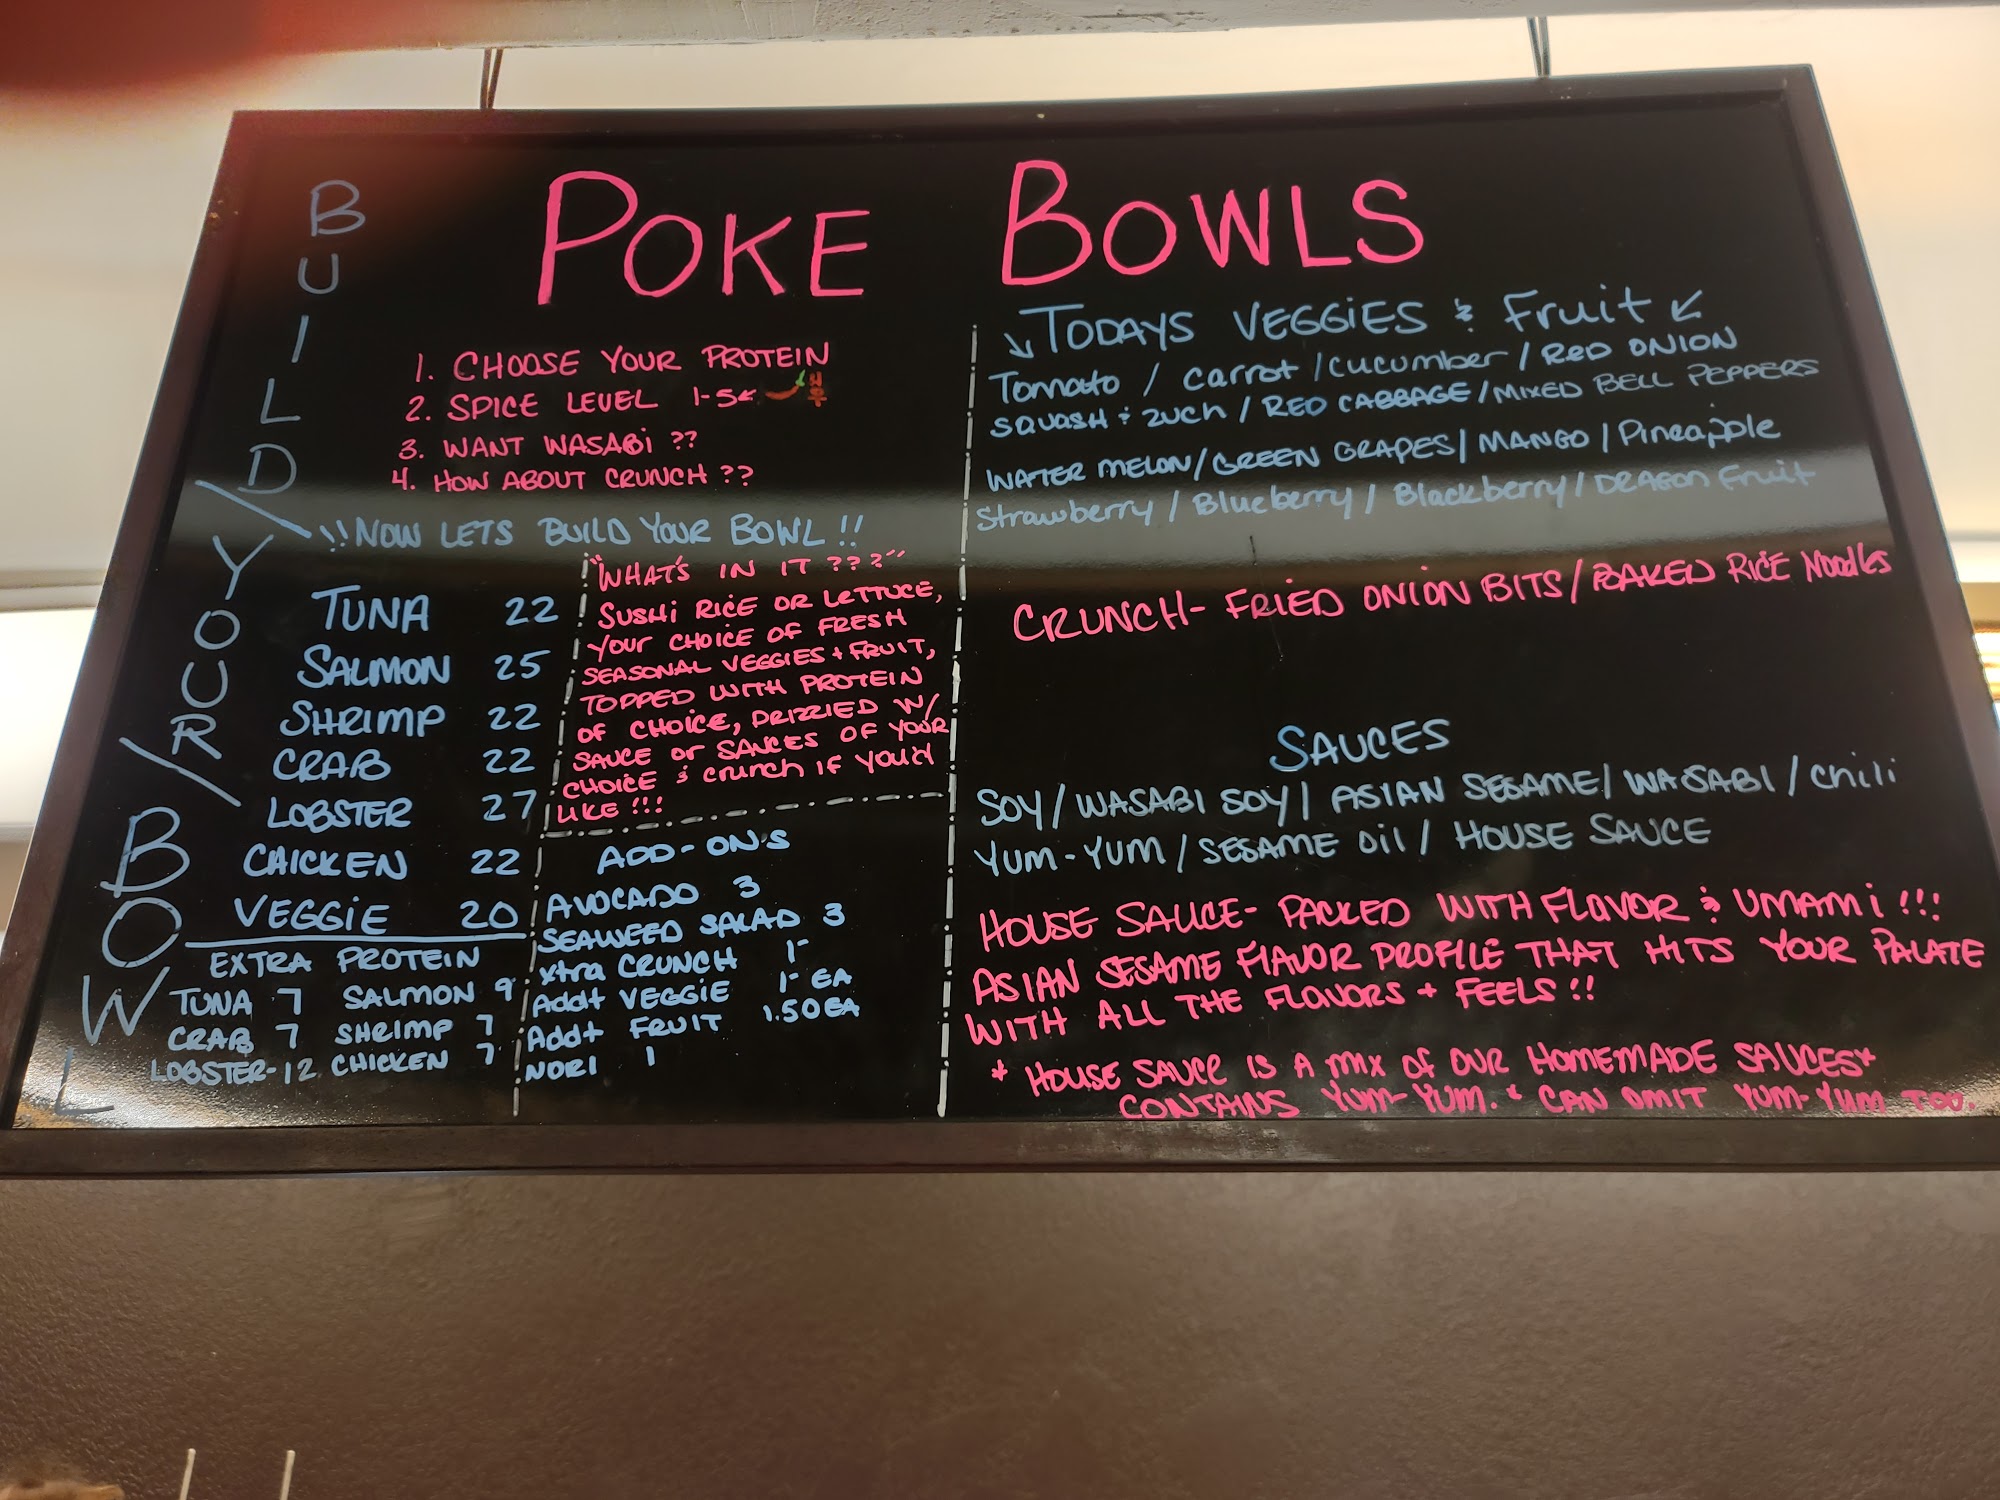 POKE BOWLS
BUILD/YOUR/BOWL
1. CHOOSE YOUR PROTEIN
2. SPICE LEVEL 1-5 HOT
3. WANT WASABi ??
4. HOW ABOUT CRUNCH ??
!! NOW LETS BUILD YOUR BOWL !!
TUNA 22
SALMON 25
SHRIMP 22
CRAB 22
LOBSTER 27
CHICKEN 22
VEGGiE 20
EXTRA PROTEIN
TUNA 7 SALMON 9
CRAB 7 SHRIMP 7
LOBSTER-12 CHICKEN 7
"WHAT'S IN IT ???"
SUSHi RiCE OR LETTUCE,
YOUR CHOICE OF FRESH
SEASONAL VEGGIES + FRUIT,
TOPPED WITH PROTEIN
OF CHOICE, DRIZZLED W/
SAUCE or SAUCES OF YOUR
CHOICE & crunch IF YOU'd
LIKE !!!
ADD-ON'S
AVOCADO 3
SEAWEED SALAD 3
xtra CRUNCH 1-
Add+ VEGGIE 1- EA
Add+ FRUIT 1.50 EA
NORI 1
TODAYS VEGGiES & Fruit
Tomato / carrot / cucumber / RED ONION
SQUASH & ZUCH / RED CABBAGE / MIXED BELL PEPPERS
WATER MELON / GREEN GRAPES / MANGO / Pineapple
Strawberry / Blueberry / Blackberry / DRAGON Fruit
CRUNCH- FRiED ONION BITS / BAKED RICE Noodles
SAUCES
SOY / WASABI SOY / ASIAN SESAME / WASABI / chili
YUM-YUM / SESAME Oil / HOUSE SAUCE
HOUSE SAUCE- PACKED WITH FLAVOR & UMAMi !!!
ASIAN SESAME FLAVOR PROFILE THAT HITS YOUR PALATE
WITH ALL THE FLAVORS + FEELS !!
* HOUSE SAUCE IS A MIX OF OUR HOMEMADE SAUCES*
CONTAINS YUM-YUM. * CAN OMIT YUM-YUM TOO.